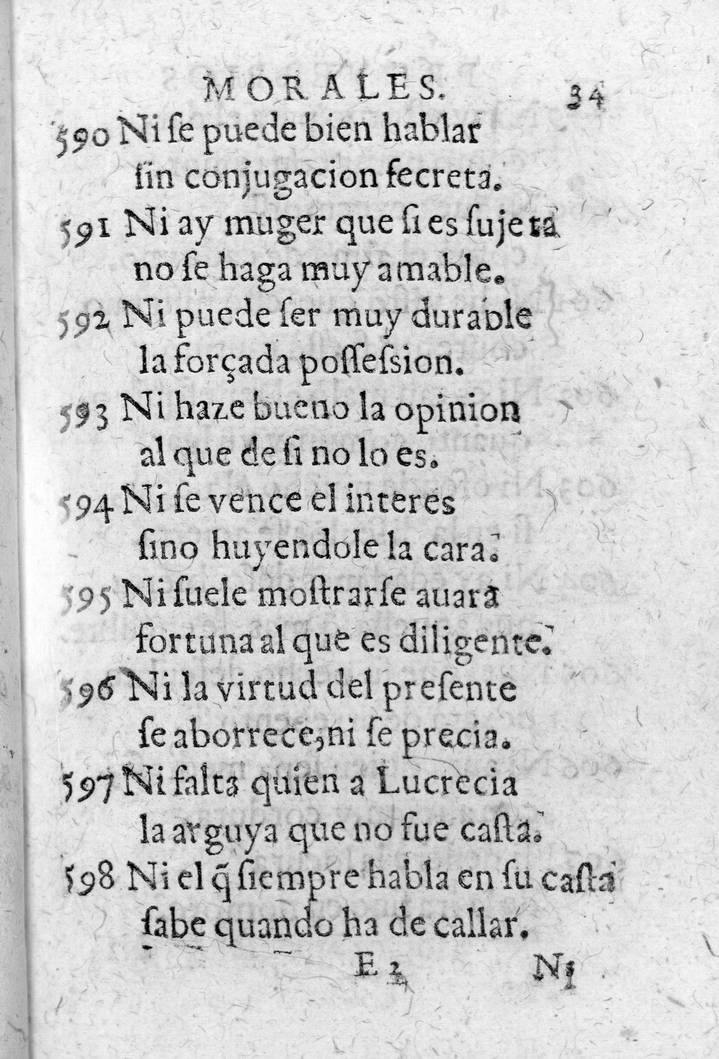 MORALES. 34
590 Ni ſe puede bien hablar
ſin conjugacion ſecreta.
591 Ni ay muger que ſi es ſujeta
no ſe haga muy amable.
592 Ni puede ſer muy durable
la forçada poſſeſsion.
593 Ni haze bueno la opinion
al que de ſi no lo es.
594 Ni ſe vence el interes
ſino huyendole la cara.
595 Ni ſuele moſtrarſe auara
fortuna al que es diligente.
596 Ni la virtud del preſente
ſe aborrece, ni ſe precia.
597 Ni falta quien a Lucrecia
la arguya que no fue caſta.
598 Ni el q̃ ſiempre habla en ſu caſta
ſabe quando ha de callar.
E 2 Ni